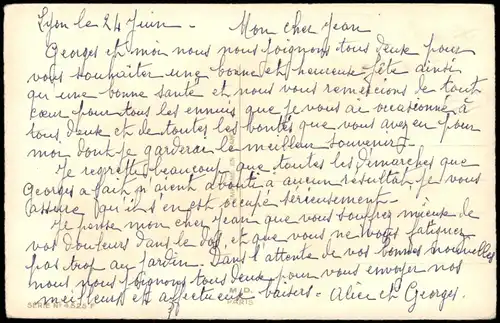 Lyon le 24 Juin - Mon cher Jean
Georges et moi nous nous joignons tous deux pour
vous souhaiter une bonne et heureuse fête ainsi
qu'une bonne santé et nous vous remercions de tout
cœur pour tous les ennuis que je vous ai occasionné à
tous deux et de toutes les bontés que vous avez eu pour
moi dont je garderai le meilleur souvenir.
Je regrette beaucoup que toutes les démarches que
Georges a fait n'aient abouti a aucun resultat je vous
assure qu'il s'en est occupé sérieusement.
Je pense mon cher Jean que vous souffrez mieux de
vos douleurs dans le dos, et que vous ne vous fatiguez
pas trop au jardin. Dans l'attente de vos bonnes nouvelles
nous nous joignons tous deux pour vous envoyer nos
meilleurs et affectueux baisers - Alice et Georges.
SERIE N° 4528 F
M.D.
PARIS